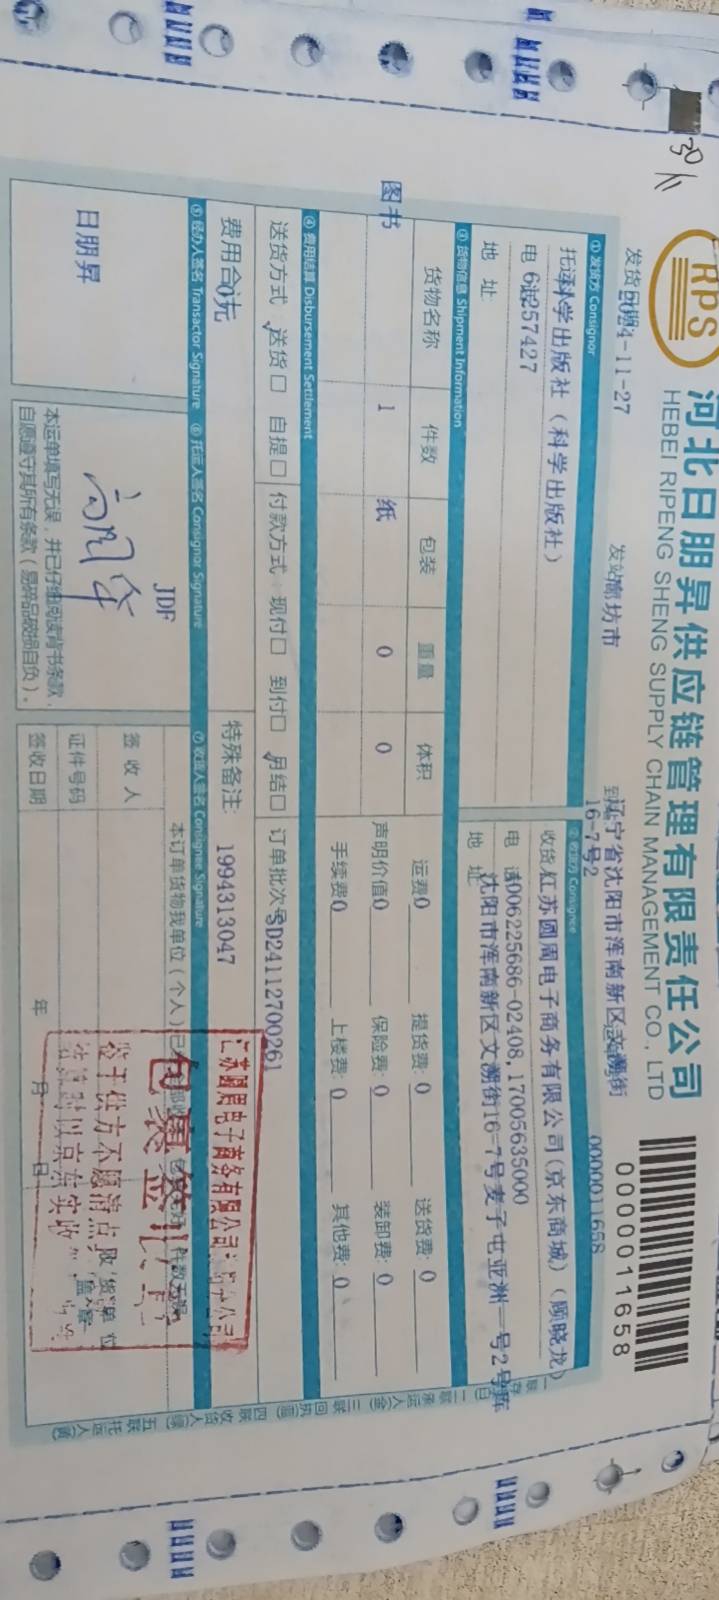 30件
RPS
河北日朋昇供应链管理有限责任公司
HEBEI RIPENG SHENG SUPPLY CHAIN MANAGEMENT CO., LTD
0000011658
发货日期 2024-11-27
发站 廊坊市
辽宁省沈阳市浑南新区文溯街
16-7号2
0000011658
① 发货方 Consignor
② 收货方 Consignee
托运 科学出版社（科学出版社）
收货 江苏圆周电子商务有限公司(京东商城)(顾晓龙)
电 话 57427
电 话 4006225686-02408,17005635000
地 址
地 址 沈阳市浑南新区文溯街16-7号麦子屯亚洲一号2号库
③ 货物信息 Shipment Information
货物名称 件数 包装 重量 体积
运费 0 提货费: 0 送货费: 0
图书 1 纸 0 0
声明价值 0 保险费: 0 装卸费: 0
手续费 0 上楼费: 0 其他费: 0
④ 费用结算 Disbursement Settlement
送货方式 送货□ 自提□ 付款方式 现付□ 到付□ 月结□ 订单批次号 SD24112700261
费用合计 0元
特殊备注: 1994313047
⑤ 经办人签名 Transactor Signature ⑥ 托运人签名 Consignor Signature ⑦ 收货人签名 Consignee Signature
JDF
日朋昇
本订单货物我单位（个人）已
签 收 人
证件号码
签收日期 年 月 日
本运单填写无误，并已仔细阅读背书条款，
自愿遵守其所有条款（易碎品破损自负）。
江苏圆周电子商务有限公司
包裹签
鉴于供方不愿清点
京东实收